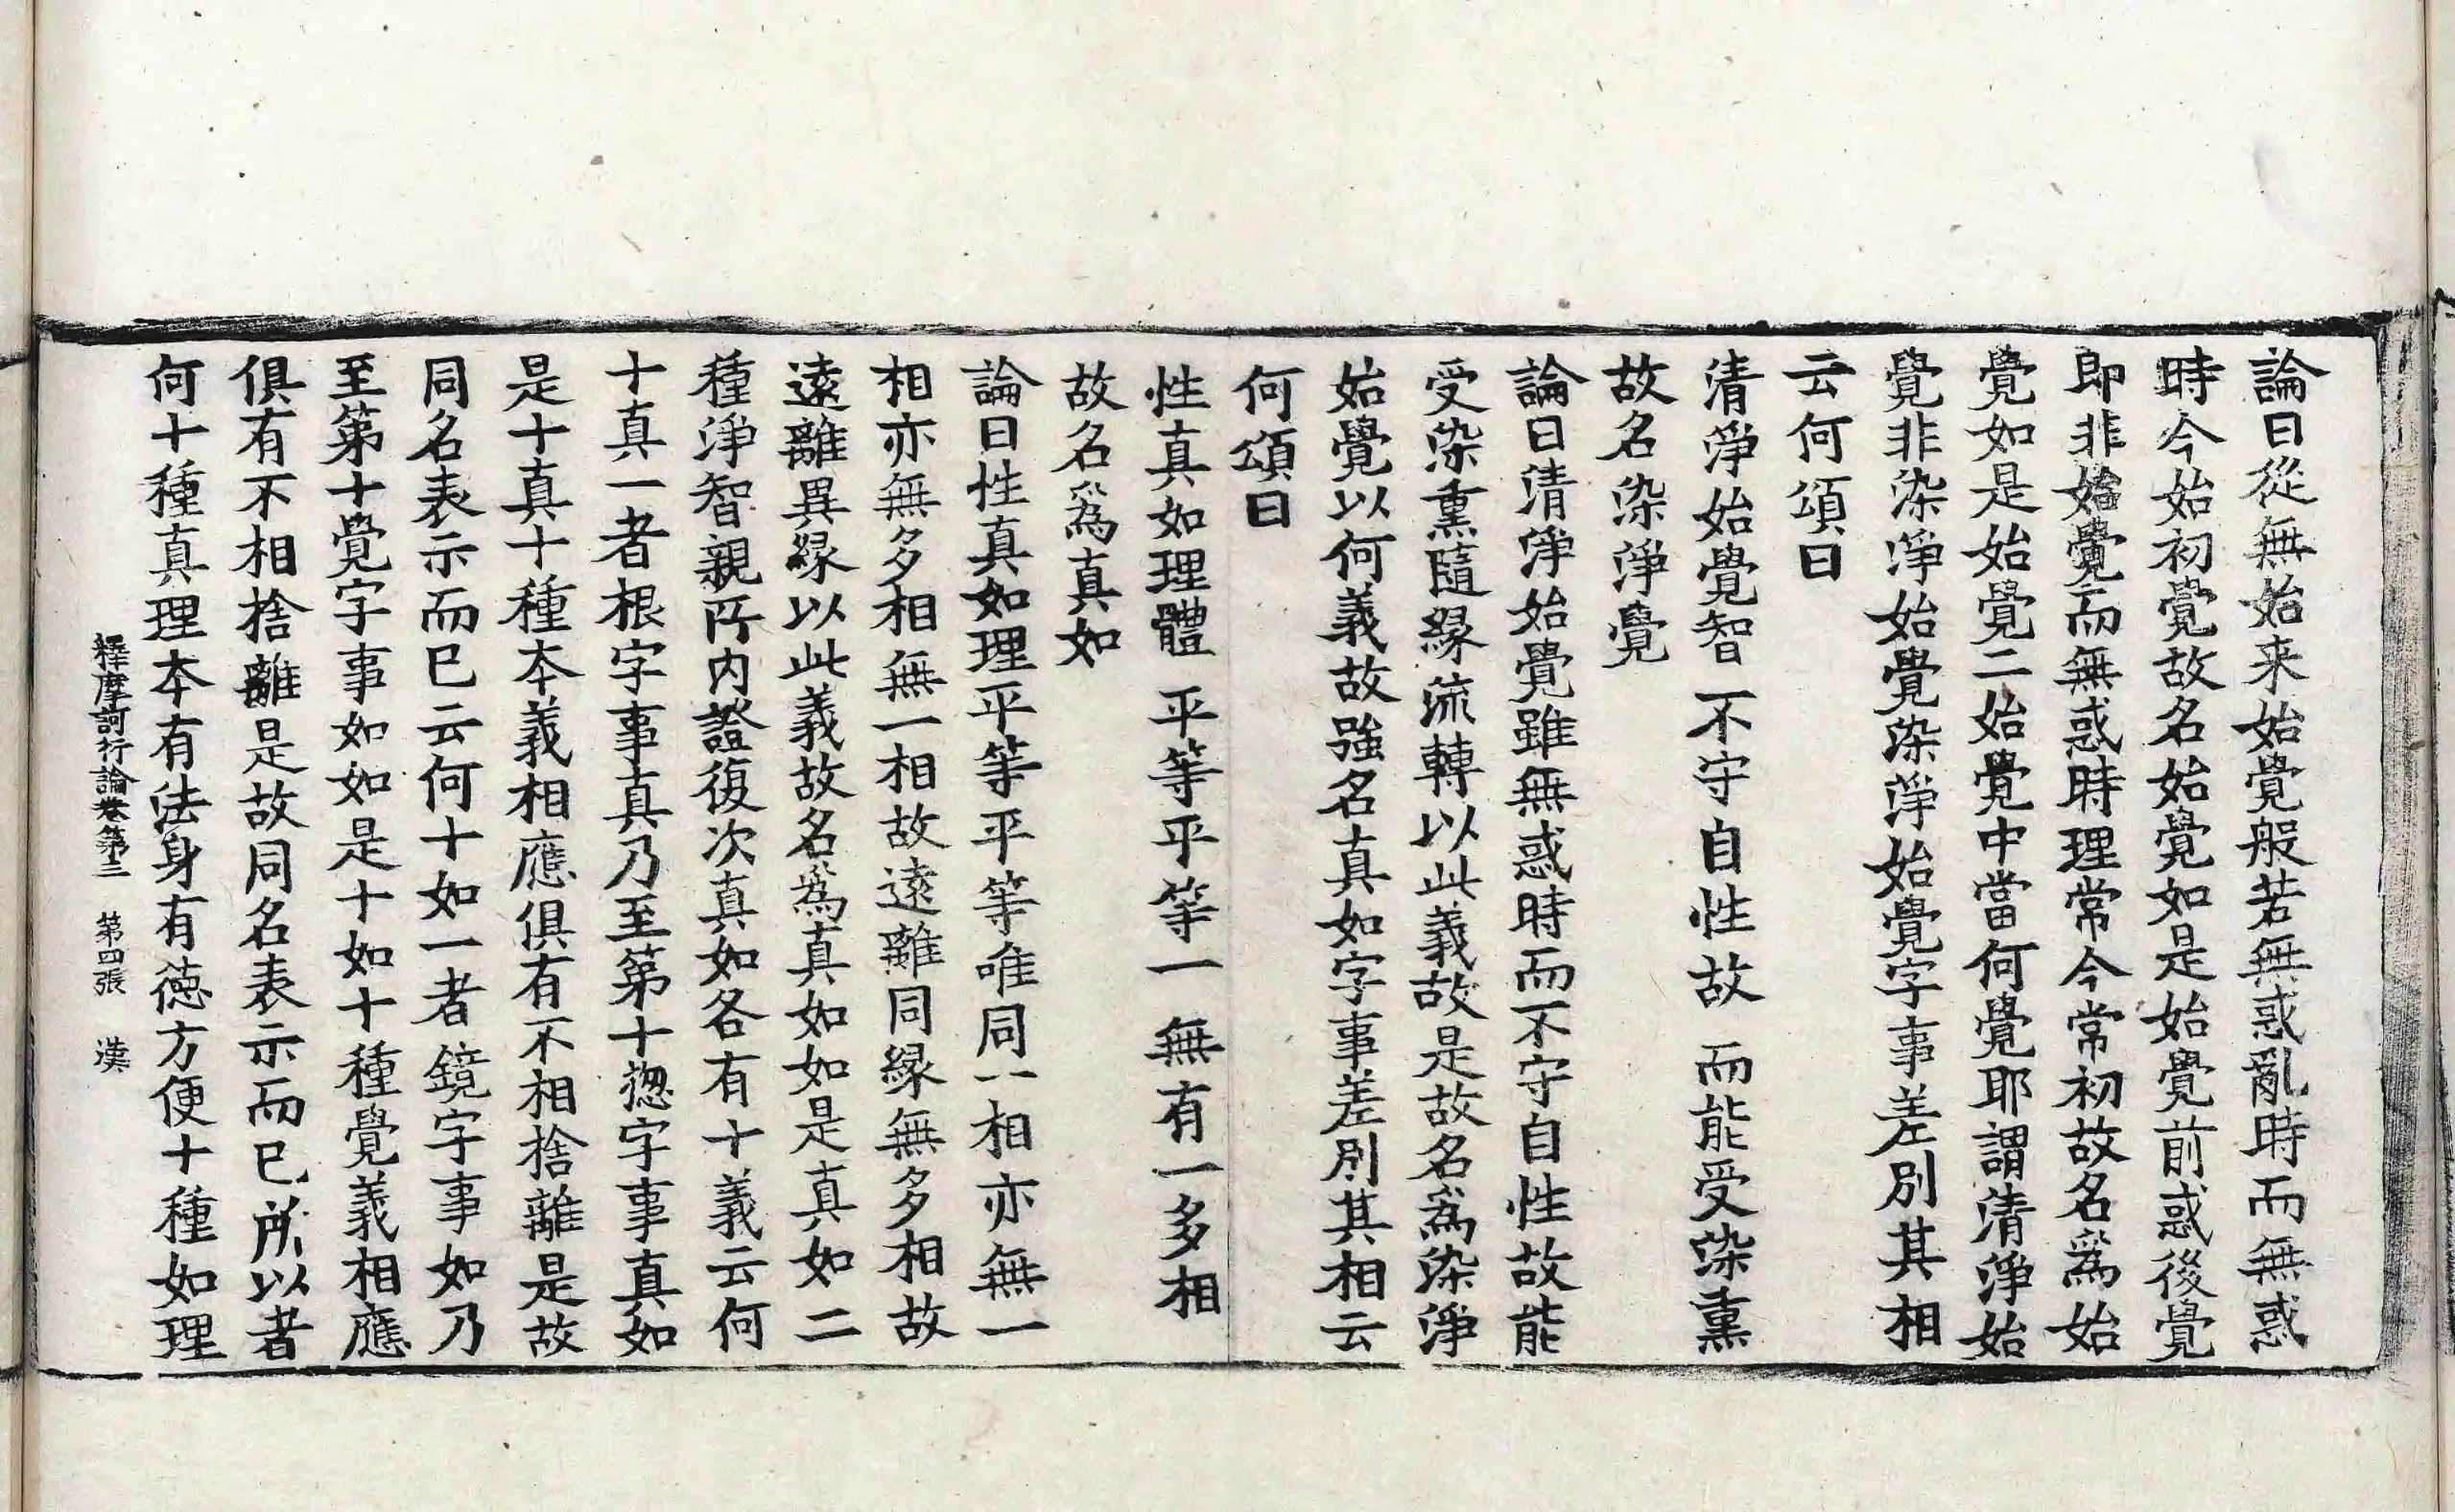 論曰從無始来始覺般若無惑亂時而無惑
時今始初覺故名始覺如是始覺前惑後覺
即非始覺而無惑時理常今常初故名爲始
覺如是始覺二始覺中當何覺耶謂清淨始
覺非染淨始覺染淨始覺字事差別其相
云何頌曰
清淨始覺智　不守自性故　而能受染熏
故名染淨覺
論曰清淨始覺雖無惑時而不守自性故能
受染熏隨緣流轉以此義故是故名爲染淨
始覺以何義故強名真如字事差別其相云
何頌曰
性真如理體　平等平等一　無有一多相
故名爲真如
論曰性真如理平等平等唯同一相亦無一
相亦無多相無一相故遠離同緣無多相故
遠離異緣以此義故名爲真如如是真如二
種淨智親所内證復次真如各有十義云何
十真一者根字事真乃至第十惣字事真如
是十真十種本義相應俱有不相捨離是故
同名表示而已云何十如一者鏡字事如乃
至第十覺字事如如是十如十種覺義相應
俱有不相捨離是故同名表示而已所以者
何十種真理本有法身有德方便十種如理
釋摩訶衍論卷第三　第四張　漢